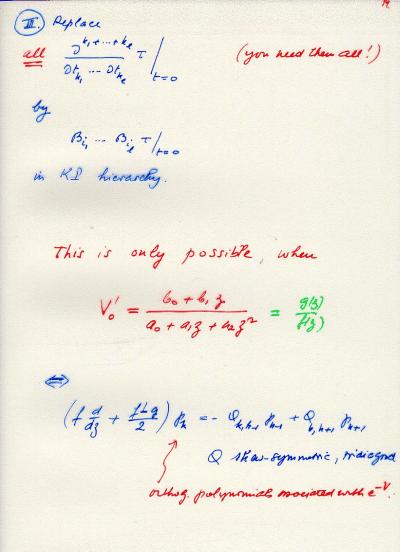 14.
III. Replace
all ∂^{k_1+...+k_ℓ} τ / ∂t_{k_1} ... ∂t_{k_ℓ} |_{t=0} (you need them all!)
by
B_{i_1} ... B_{i_ℓ} τ |_{t=0}
in KP hierarchy.
This is only possible, when
V_0' = (b_0 + b_1 z) / (a_0 + a_1 z + a_2 z^2) = g(z)/f(z)
⇔
(f d/dz + (f'-g)/2) p_n = - Q_{n,n-1} p_{n-1} + Q_{n,n+1} p_{n+1}
Q skew-symmetric, tridiagonal
orthog. polynomials associated with e^{-V}.